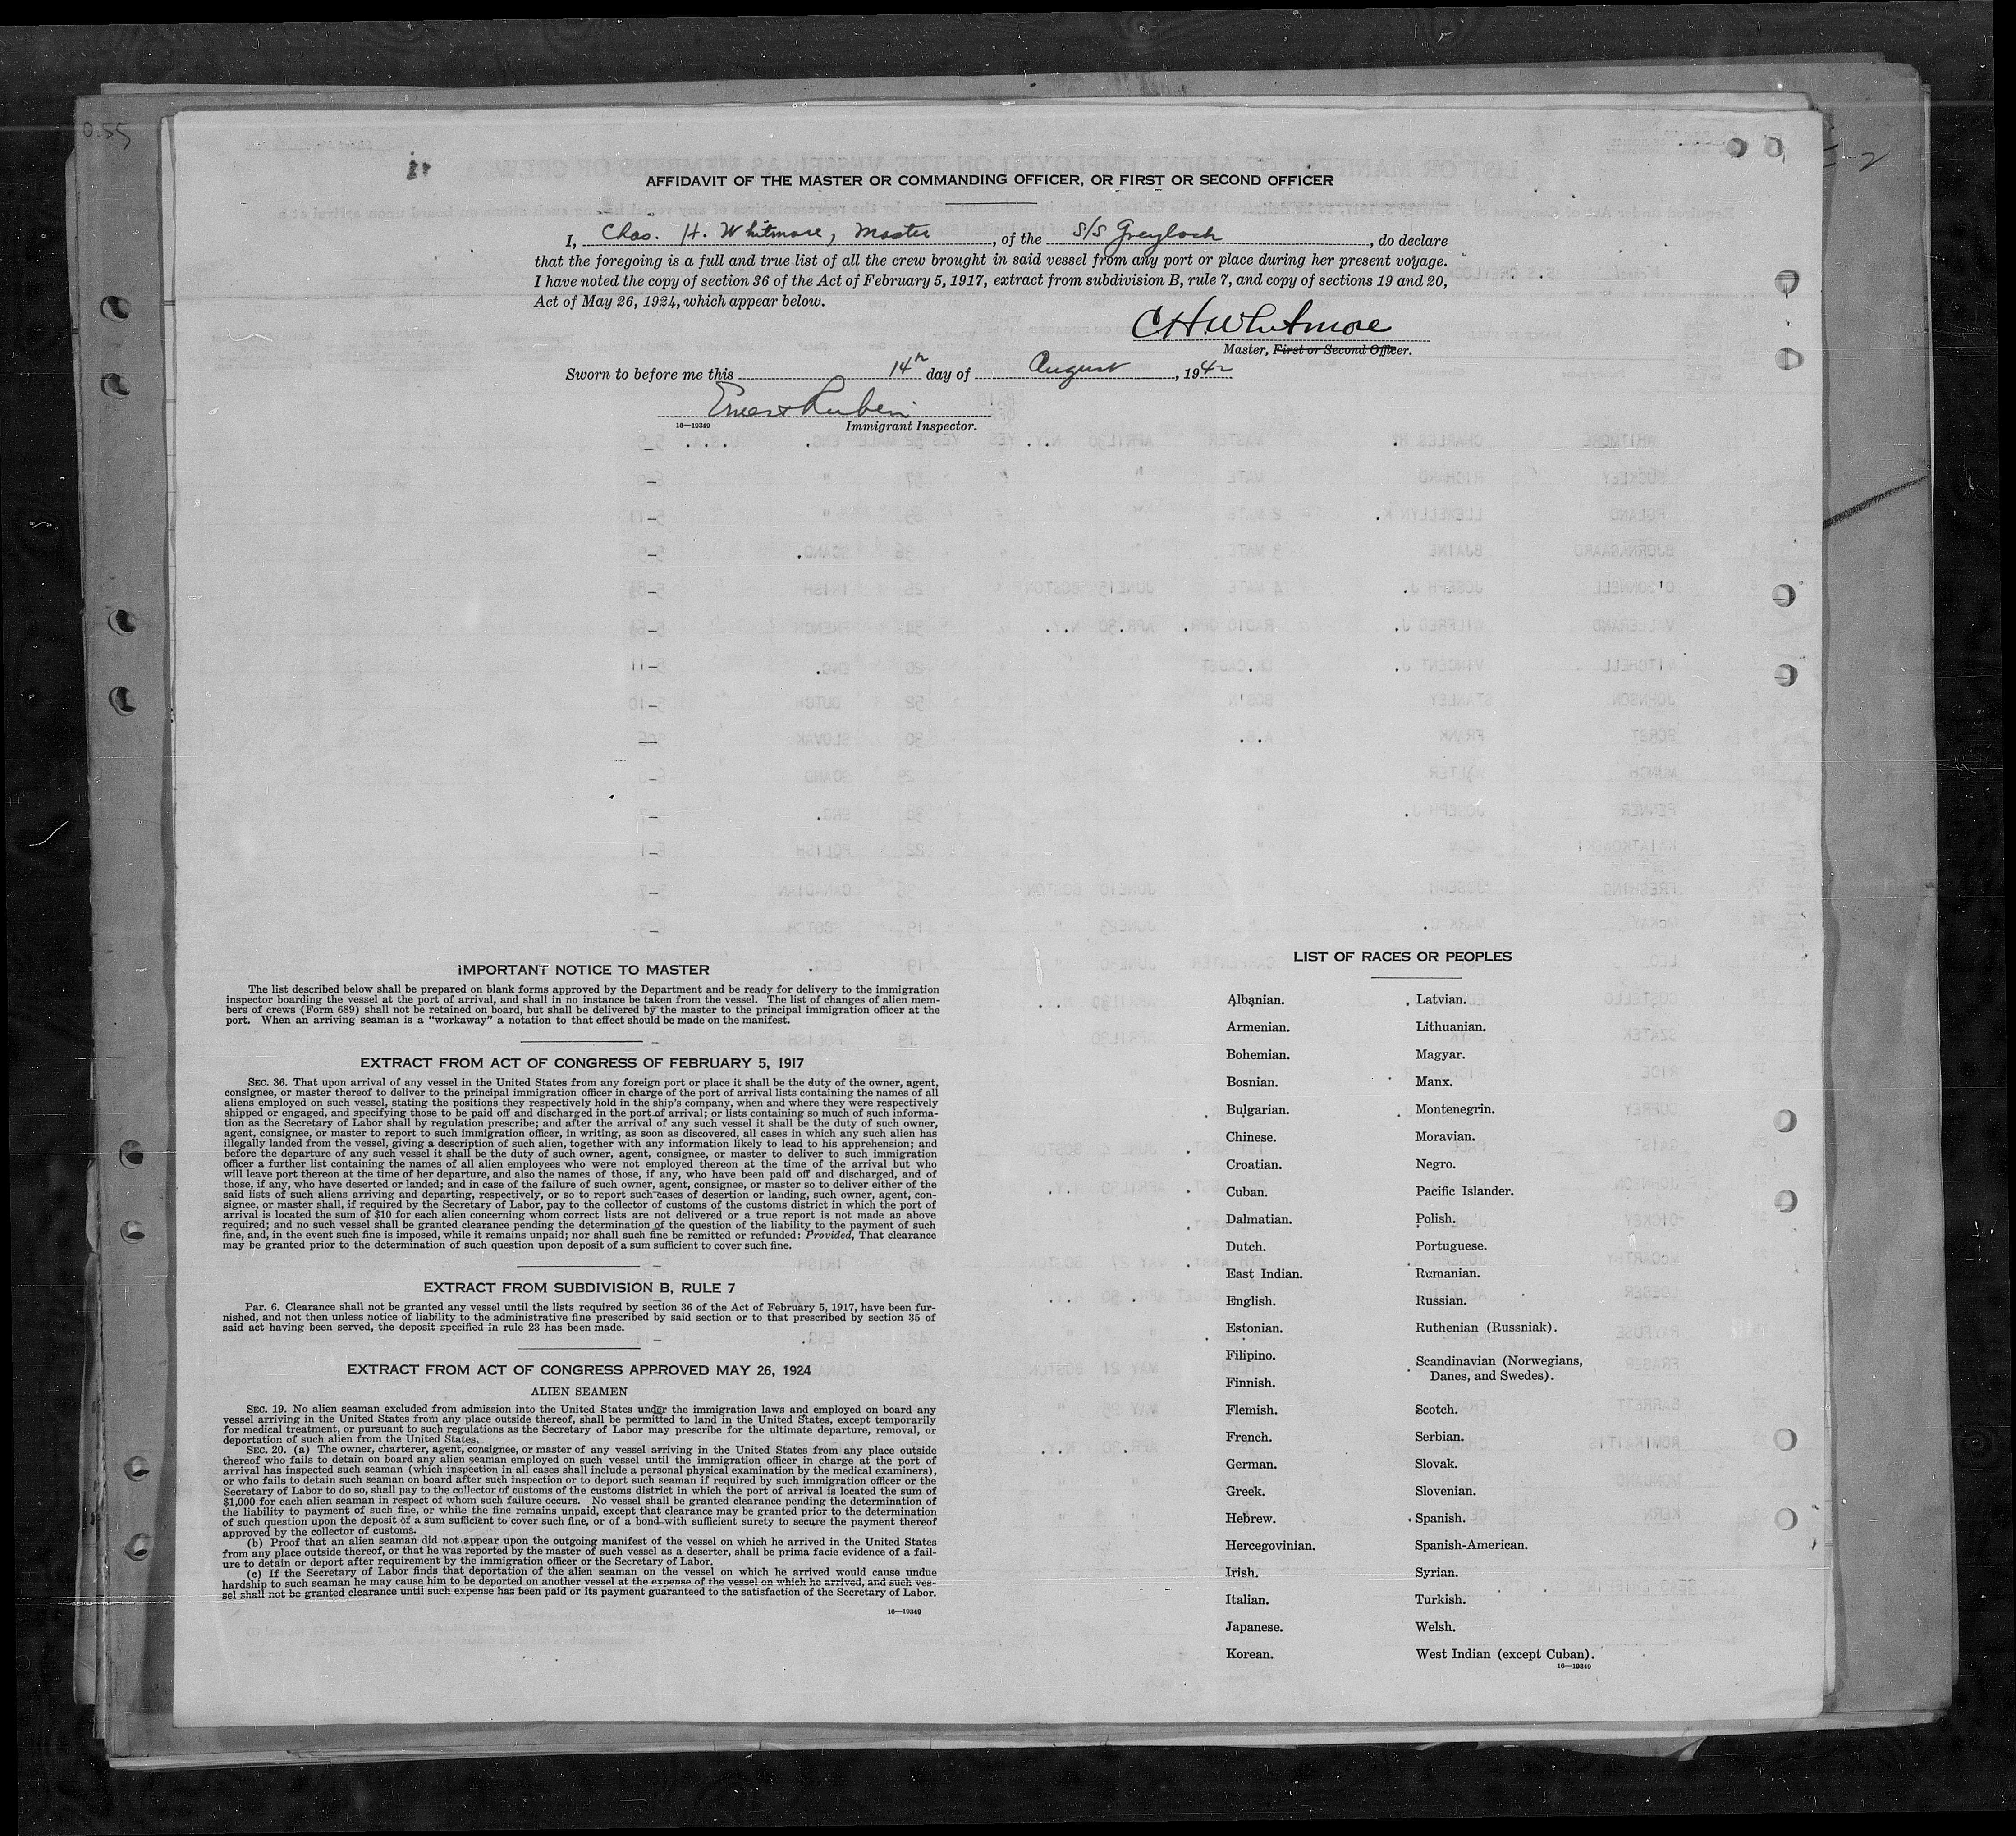 0.55
AFFIDAVIT OF THE MASTER OR COMMANDING OFFICER, OR FIRST OR SECOND OFFICER
I, Chas. H. Whitmore, Master, of the S/S Greylock, do declare
that the foregoing is a full and true list of all the crew brought in said vessel from any port or place during her present voyage.
I have noted the copy of section 36 of the Act of February 5, 1917, extract from subdivision B, rule 7, and copy of sections 19 and 20,
Act of May 26, 1924, which appear below.
CHWhitmore
Master, First or Second Officer.
Sworn to before me this 14th day of August, 1942
Ernest Rubin
16—19349 Immigrant Inspector.
IMPORTANT NOTICE TO MASTER
The list described below shall be prepared on blank forms approved by the Department and be ready for delivery to the immigration
inspector boarding the vessel at the port of arrival, and shall in no instance be taken from the vessel. The list of changes of alien mem-
bers of crews (Form 689) shall not be retained on board, but shall be delivered by the master to the principal immigration officer at the
port. When an arriving seaman is a “workaway” a notation to that effect should be made on the manifest.
EXTRACT FROM ACT OF CONGRESS OF FEBRUARY 5, 1917
SEC. 36. That upon arrival of any vessel in the United States from any foreign port or place it shall be the duty of the owner, agent,
consignee, or master thereof to deliver to the principal immigration officer in charge of the port of arrival lists containing the names of all
aliens employed on such vessel, stating the positions they respectively hold in the ship's company, when and where they were respectively
shipped or engaged, and specifying those to be paid off and discharged in the port of arrival; or lists containing so much of such informa-
tion as the Secretary of Labor shall by regulation prescribe; and after the arrival of any such vessel it shall be the duty of such owner,
agent, consignee, or master to report to such immigration officer, in writing, as soon as discovered, all cases in which any such alien has
illegally landed from the vessel, giving a description of such alien, together with any information likely to lead to his apprehension; and
before the departure of any such vessel it shall be the duty of such owner, agent, consignee, or master to deliver to such immigration
officer a further list containing the names of all alien employees who were not employed thereon at the time of the arrival but who
will leave port thereon at the time of her departure, and also the names of those, if any, who have been paid off and discharged, and of
those, if any, who have deserted or landed; and in case of the failure of such owner, agent, consignee, or master so to deliver either of the
said lists of such aliens arriving and departing, respectively, or so to report such cases of desertion or landing, such owner, agent, con-
signee, or master shall, if required by the Secretary of Labor, pay to the collector of customs of the customs district in which the port of
arrival is located the sum of $10 for each alien concerning whom correct lists are not delivered or a true report is not made as above
required; and no such vessel shall be granted clearance pending the determination of the question of the liability to the payment of such
fine, and, in the event such fine is imposed, while it remains unpaid; nor shall such fine be remitted or refunded: Provided, That clearance
may be granted prior to the determination of such question upon deposit of a sum sufficient to cover such fine.
EXTRACT FROM SUBDIVISION B, RULE 7
Par. 6. Clearance shall not be granted any vessel until the lists required by section 36 of the Act of February 5, 1917, have been fur-
nished, and not then unless notice of liability to the administrative fine prescribed by said section or to that prescribed by section 35 of
said act having been served, the deposit specified in rule 23 has been made.
EXTRACT FROM ACT OF CONGRESS APPROVED MAY 26, 1924
ALIEN SEAMEN
SEC. 19. No alien seaman excluded from admission into the United States under the immigration laws and employed on board any
vessel arriving in the United States from any place outside thereof, shall be permitted to land in the United States, except temporarily
for medical treatment, or pursuant to such regulations as the Secretary of Labor may prescribe for the ultimate departure, removal, or
deportation of such alien from the United States.
SEC. 20. (a) The owner, charterer, agent, consignee, or master of any vessel arriving in the United States from any place outside
thereof who fails to detain on board any alien seaman employed on such vessel until the immigration officer in charge at the port of
arrival has inspected such seaman (which inspection in all cases shall include a personal physical examination by the medical examiners),
or who fails to detain such seaman on board after such inspection or to deport such seaman if required by such immigration officer or the
Secretary of Labor to do so, shall pay to the collector of customs of the customs district in which the port of arrival is located the sum of
$1,000 for each alien seaman in respect of whom such failure occurs. No vessel shall be granted clearance pending the determination of
the liability to payment of such fine, or while the fine remains unpaid, except that clearance may be granted prior to the determination
of such question upon the deposit of a sum sufficient to cover such fine, or of a bond with sufficient surety to secure the payment thereof
approved by the collector of customs.
(b) Proof that an alien seaman did not appear upon the outgoing manifest of the vessel on which he arrived in the United States
from any place outside thereof, or that he was reported by the master of such vessel as a deserter, shall be prima facie evidence of a fail-
ure to detain or deport after requirement by the immigration officer or the Secretary of Labor.
(c) If the Secretary of Labor finds that deportation of the alien seaman on the vessel on which he arrived would cause undue
hardship to such seaman he may cause him to be deported on another vessel at the expense of the vessel on which he arrived, and such ves-
sel shall not be granted clearance until such expense has been paid or its payment guaranteed to the satisfaction of the Secretary of Labor.
16—19349
LIST OF RACES OR PEOPLES
Albanian.
Armenian.
Bohemian.
Bosnian.
Bulgarian.
Chinese.
Croatian.
Cuban.
Dalmatian.
Dutch.
East Indian.
English.
Estonian.
Filipino.
Finnish.
Flemish.
French.
German.
Greek.
Hebrew.
Hercegovinian.
Irish.
Italian.
Japanese.
Korean.
Latvian.
Lithuanian.
Magyar.
Manx.
Montenegrin.
Moravian.
Negro.
Pacific Islander.
Polish.
Portuguese.
Rumanian.
Russian.
Ruthenian (Russniak).
Scandinavian (Norwegians,
Danes, and Swedes).
Scotch.
Serbian.
Slovak.
Slovenian.
Spanish.
Spanish-American.
Syrian.
Turkish.
Welsh.
West Indian (except Cuban).
16—19349